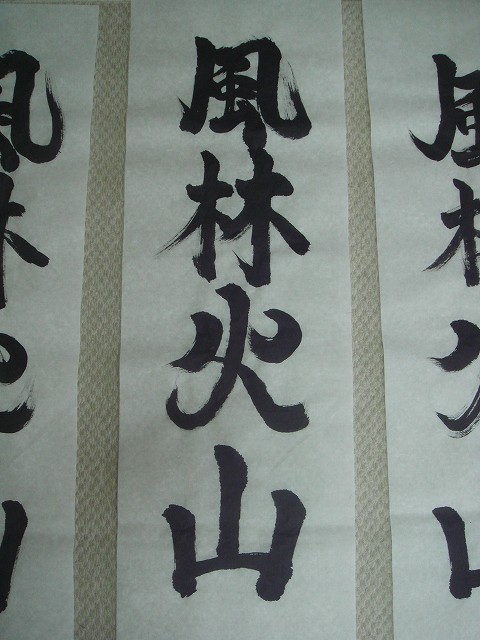 風林火山
風林火山
風林火山